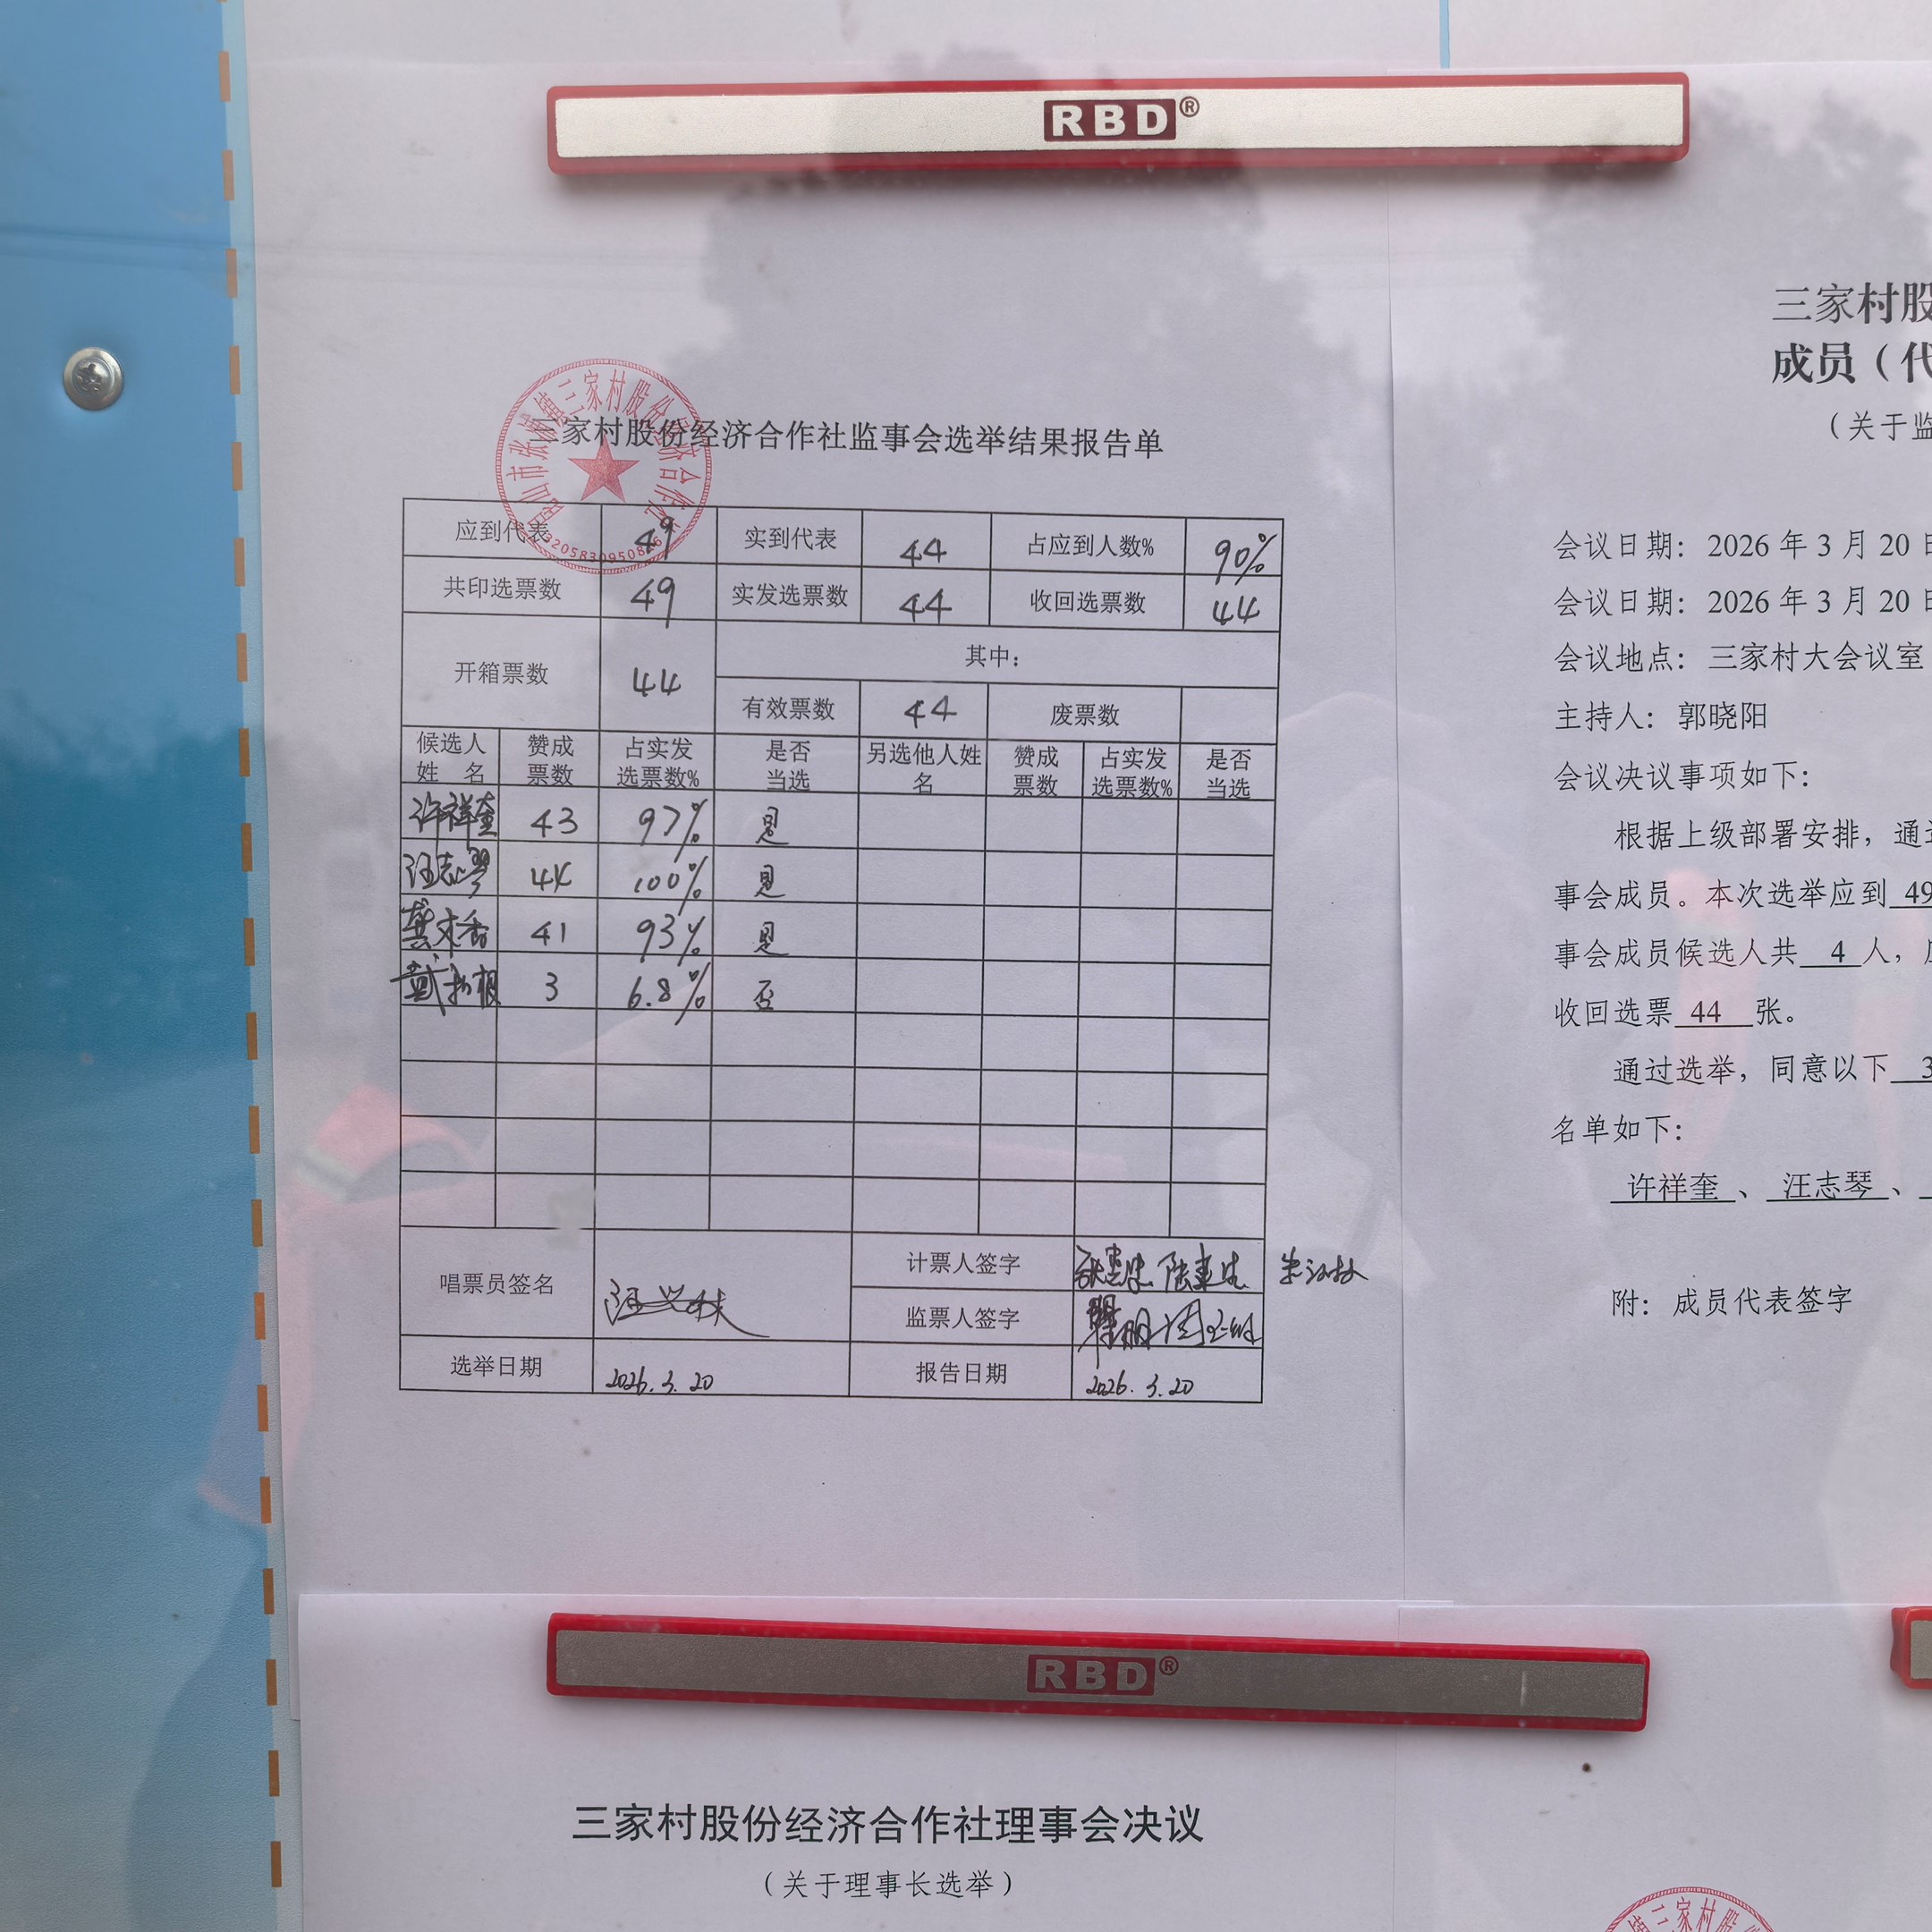 RBD®
三家村股份经济合作社监事会选举结果报告单
应到代表 49 实到代表 44 占应到人数% 90%
共印选票数 49 实发选票数 44 收回选票数 44
开箱票数 44 其中:
有效票数 44 废票数
候选人姓 名 赞成票数 占实发选票数% 是否当选 另选他人姓名 赞成票数 占实发选票数% 是否当选
许祥奎 43 97% 是
汪志琴 44 100% 是
龚木香 41 93% 是
戴 根 3 6.8% 否
唱票员签名 计票人签字
监票人签字
选举日期 2026.3.20 报告日期 2026.3.20
三家村股
成员（代
（关于监
会议日期: 2026 年 3 月 20 日
会议日期: 2026 年 3 月 20 日
会议地点: 三家村大会议室
主持人: 郭晓阳
会议决议事项如下:
根据上级部署安排，通过
事会成员。本次选举应到 49
事会成员候选人共 4 人，应
收回选票 44 张。
通过选举，同意以下 3
名单如下:
许祥奎 、 汪志琴 、
附: 成员代表签字
RBD®
三家村股份经济合作社理事会决议
（关于理事长选举）